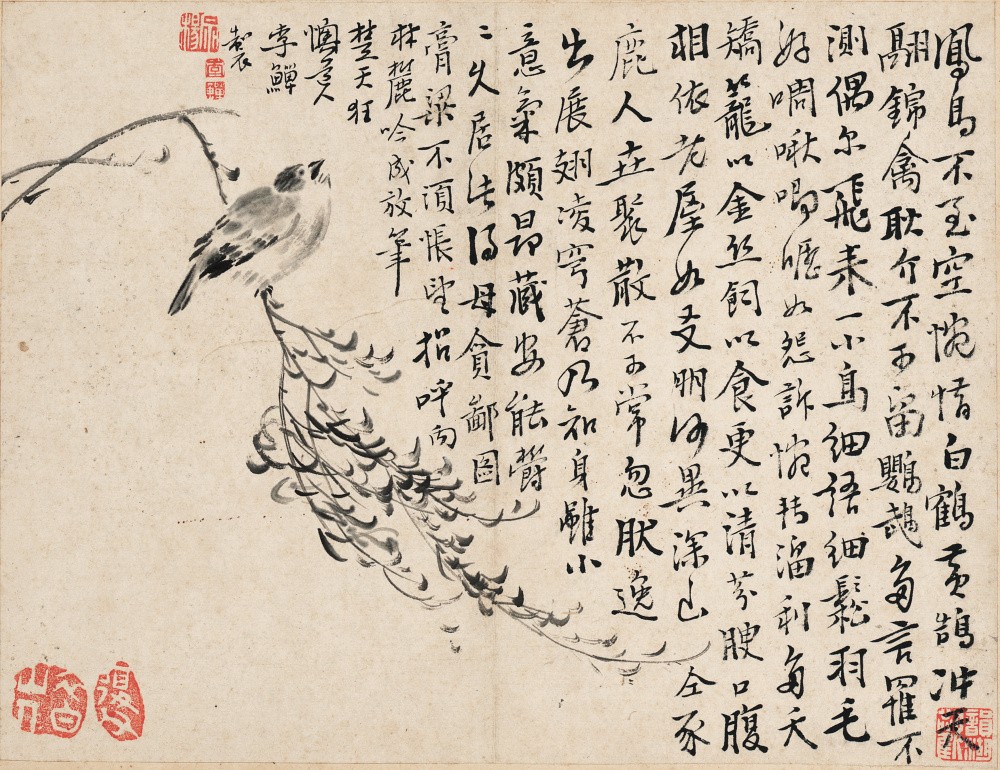 鳳鳥不至空惋惜白鶴黃鵠冲天
翮錦禽耿介不可留鸚鵡多言羅不
測偶尔飛来一小鳥細語細鬆羽毛
好啁啾鳴如怨訴惋轉溜利多夭
矯籠以金丝飼以食更以清芬腴口腹
相依老屋如友朋何異深山仝豕
鹿人世聚散不可常忽肰逸
出展翅凌穹蒼乃知身雖小
意氣頗昂藏安能欝
二久居此得毋貪鄙圖
膏粱不須悵望招呼向
林麓吟成放筆
楚天狂
懊道人
李鱓
製